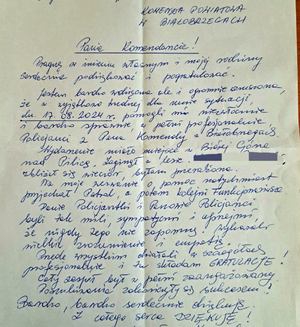 KOMENDA POWIATOWA
W BIAŁOBRZEGACH
Panie Komendancie!
Pragnę w imieniu własnym i mojej rodziny
serdecznie podziękować i pogratulować.
Jestem bardzo wdzięczna ale i ogromnie wzruszona,
że w wyjątkowo trudnej dla mnie sytuacji
dn. 17.08.2024 pomogli mi niezwłocznie
i bardzo sprawnie, w pełni profesjonalnie
Policjanci z Pana Komendy w Białobrzegach
Wydarzenie miało miejsce w Białej Górze
nad Pilicą. Zaginął w lesie
zbliżał się wieczór, byłam przerażona.
Na moje wezwanie o pomoc natychmiast
przyjechał Patrol, a potem kolejni Funkcjonariusze
Panie Policjantki i Panowie Policjanci
byli tak mili, sympatyczni i uprzejmi,
że nigdy tego nie zapomnę.
wielkie zrozumienie i empatię.
Przede wszystkim działali w
profesjonalnie i za to składam GRATULACJE!
Cały zespół był w pełni zaangażowany
Poszukiwania zakończyły się sukcesem!
Bardzo, bardzo serdecznie dziękuję
Z całego serca DZIĘKUJĘ!